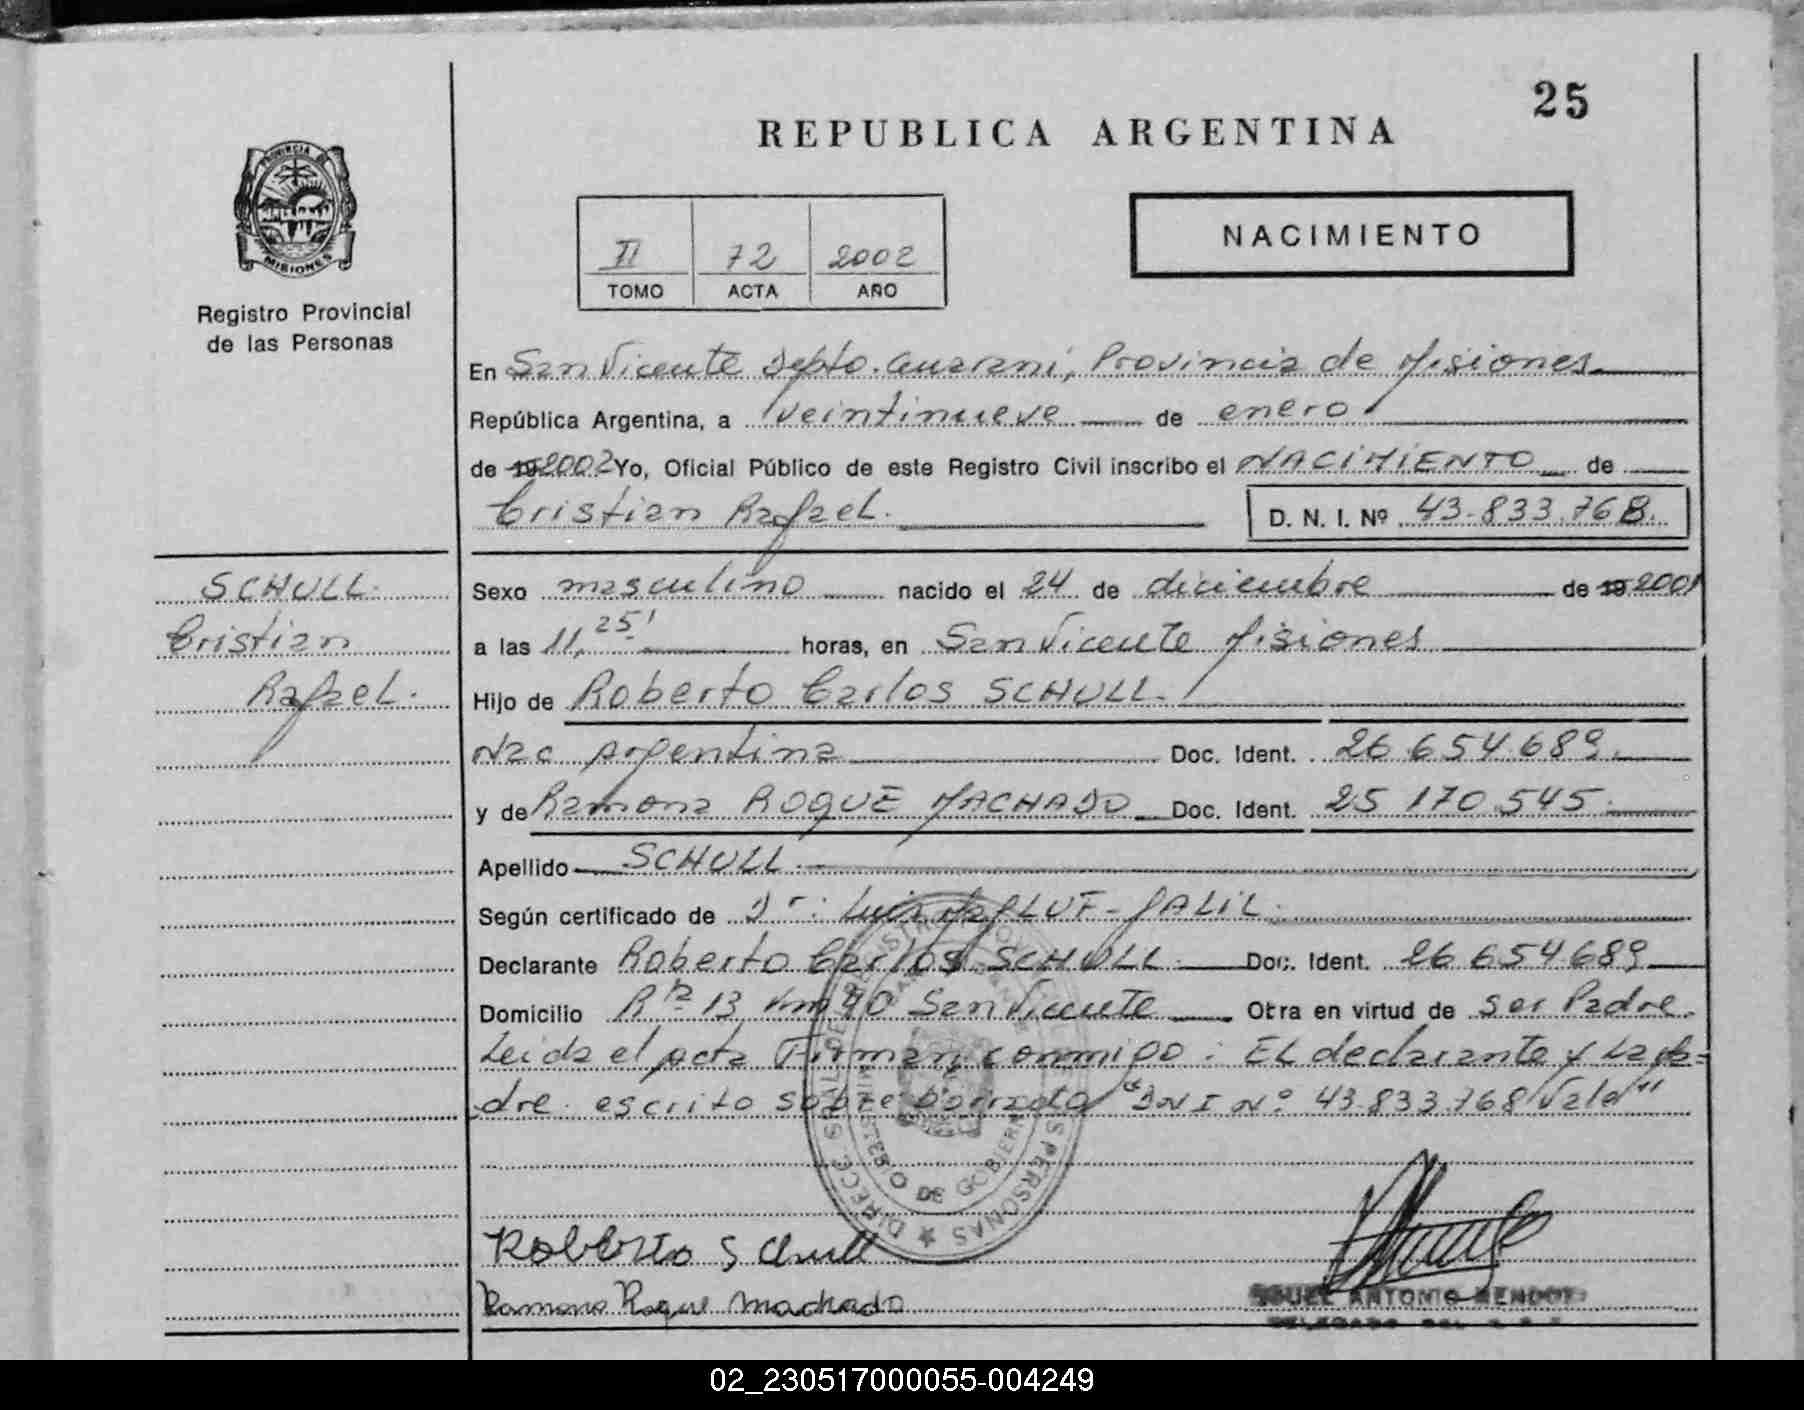 25
REPUBLICA ARGENTINA
PROVINCIA DE
MISIONES
Registro Provincial
de las Personas
II 72 2002
TOMO ACTA AÑO
NACIMIENTO
En San Vicente Depto. Guaraní, Provincia de Misiones
República Argentina, a veintinueve de enero
de 19 2002 Yo, Oficial Público de este Registro Civil inscribo el NACIMIENTO de
Cristian Rafael. D. N. I. Nº 43.833.768.
SCHULL.
Cristian
Rafael.
Sexo masculino nacido el 24 de diciembre de 19 2001
a las 11,25' horas, en San Vicente Misiones
Hijo de Roberto Carlos SCHULL.
Nac Argentina Doc. Ident. 26.654.689.
y de Ramona ROQUE MACHADO Doc. Ident. 25.170.545.
Apellido SCHULL.
Según certificado de Dr: Luis
Declarante Roberto Carlos SCHULL Doc. Ident. 26.654.689
Domicilio Rta 13 km 40 San Vicente Otra en virtud de ser Padre.
Leida el acta Firman conmigo: EL declarante y La ma=
dre. escrito sobre borrado "DNI Nº 43.833.768 Vale"
PERSONAS
DE GOBIERN
Roberto Schull
Ramona Roque Machado
ANTONIO
02_230517000055-004249